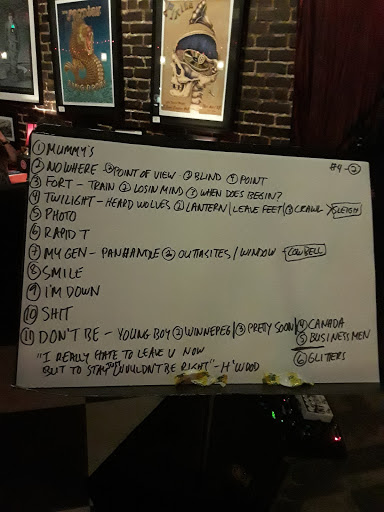 ① MUMMY'S
② NOWHERE - ② POINT OF VIEW ③ BLIND ④ POINT #4-②
③ FORT - TRAIN ② LOSIN MIND ③ WHEN DOES BEGIN?
④ TWILIGHT - HEARD WOLVES ② LANTERN / LEAVE FEET / ③ CRAWL SLEIGH
⑤ PHOTO
⑥ RAPID T
⑦ MY GEN - PANHANDLE ② OUTTASITES / WINDOW - COWBELL
⑧ SMILE
⑨ I'M DOWN
⑩ SHIT
⑪ DON'T BE - YOUNG BOY ② WINNEPEG / ③ PRETTY SOON / ④ CANADA
⑤ BUSINESS MEN
⑥ GLITTERS
"I REALLY HATE TO LEAVE U NOW
BUT TO STAY JUST WOULDN'T BE RIGHT" - H'WOOD